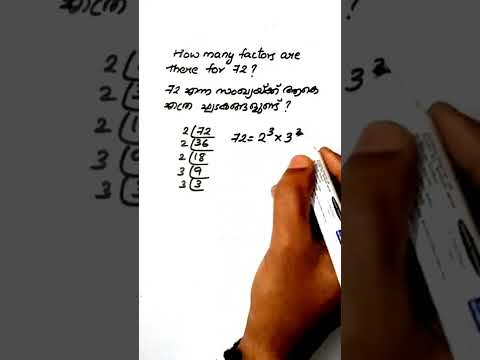 How many factors are
there for 72?
72 എന്ന സംഖ്യയ്ക്ക് ആകെ
എത്ര ഘടകങ്ങളുണ്ട്?
2 72
2 36
2 18
3 9
3 3
72 = 2³ × 3²